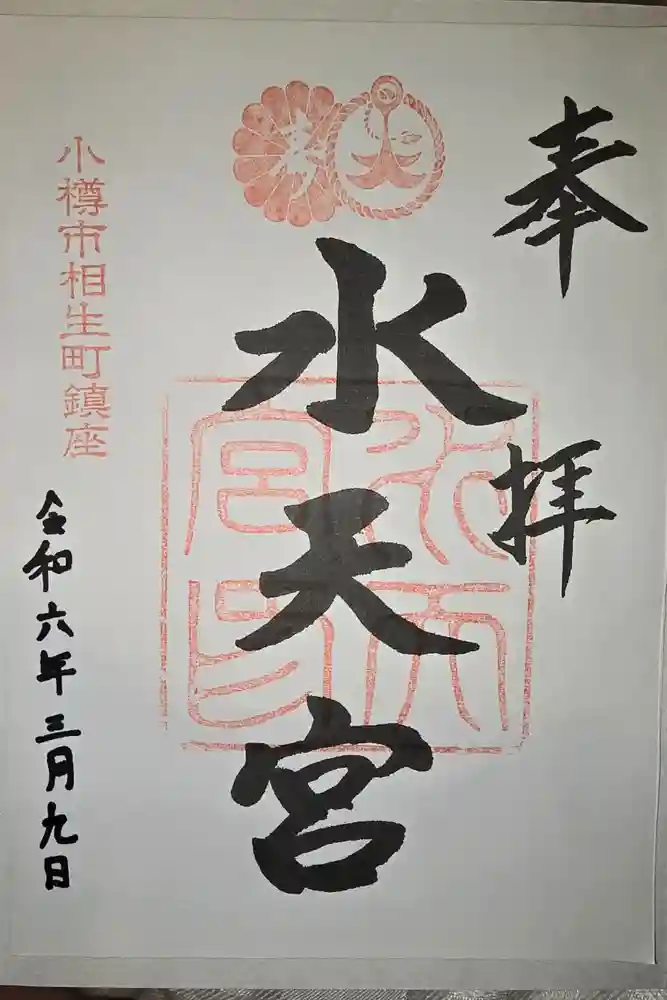 奉拝
水天宮
水天宮印
小樽市相生町鎮座
令和六年三月九日